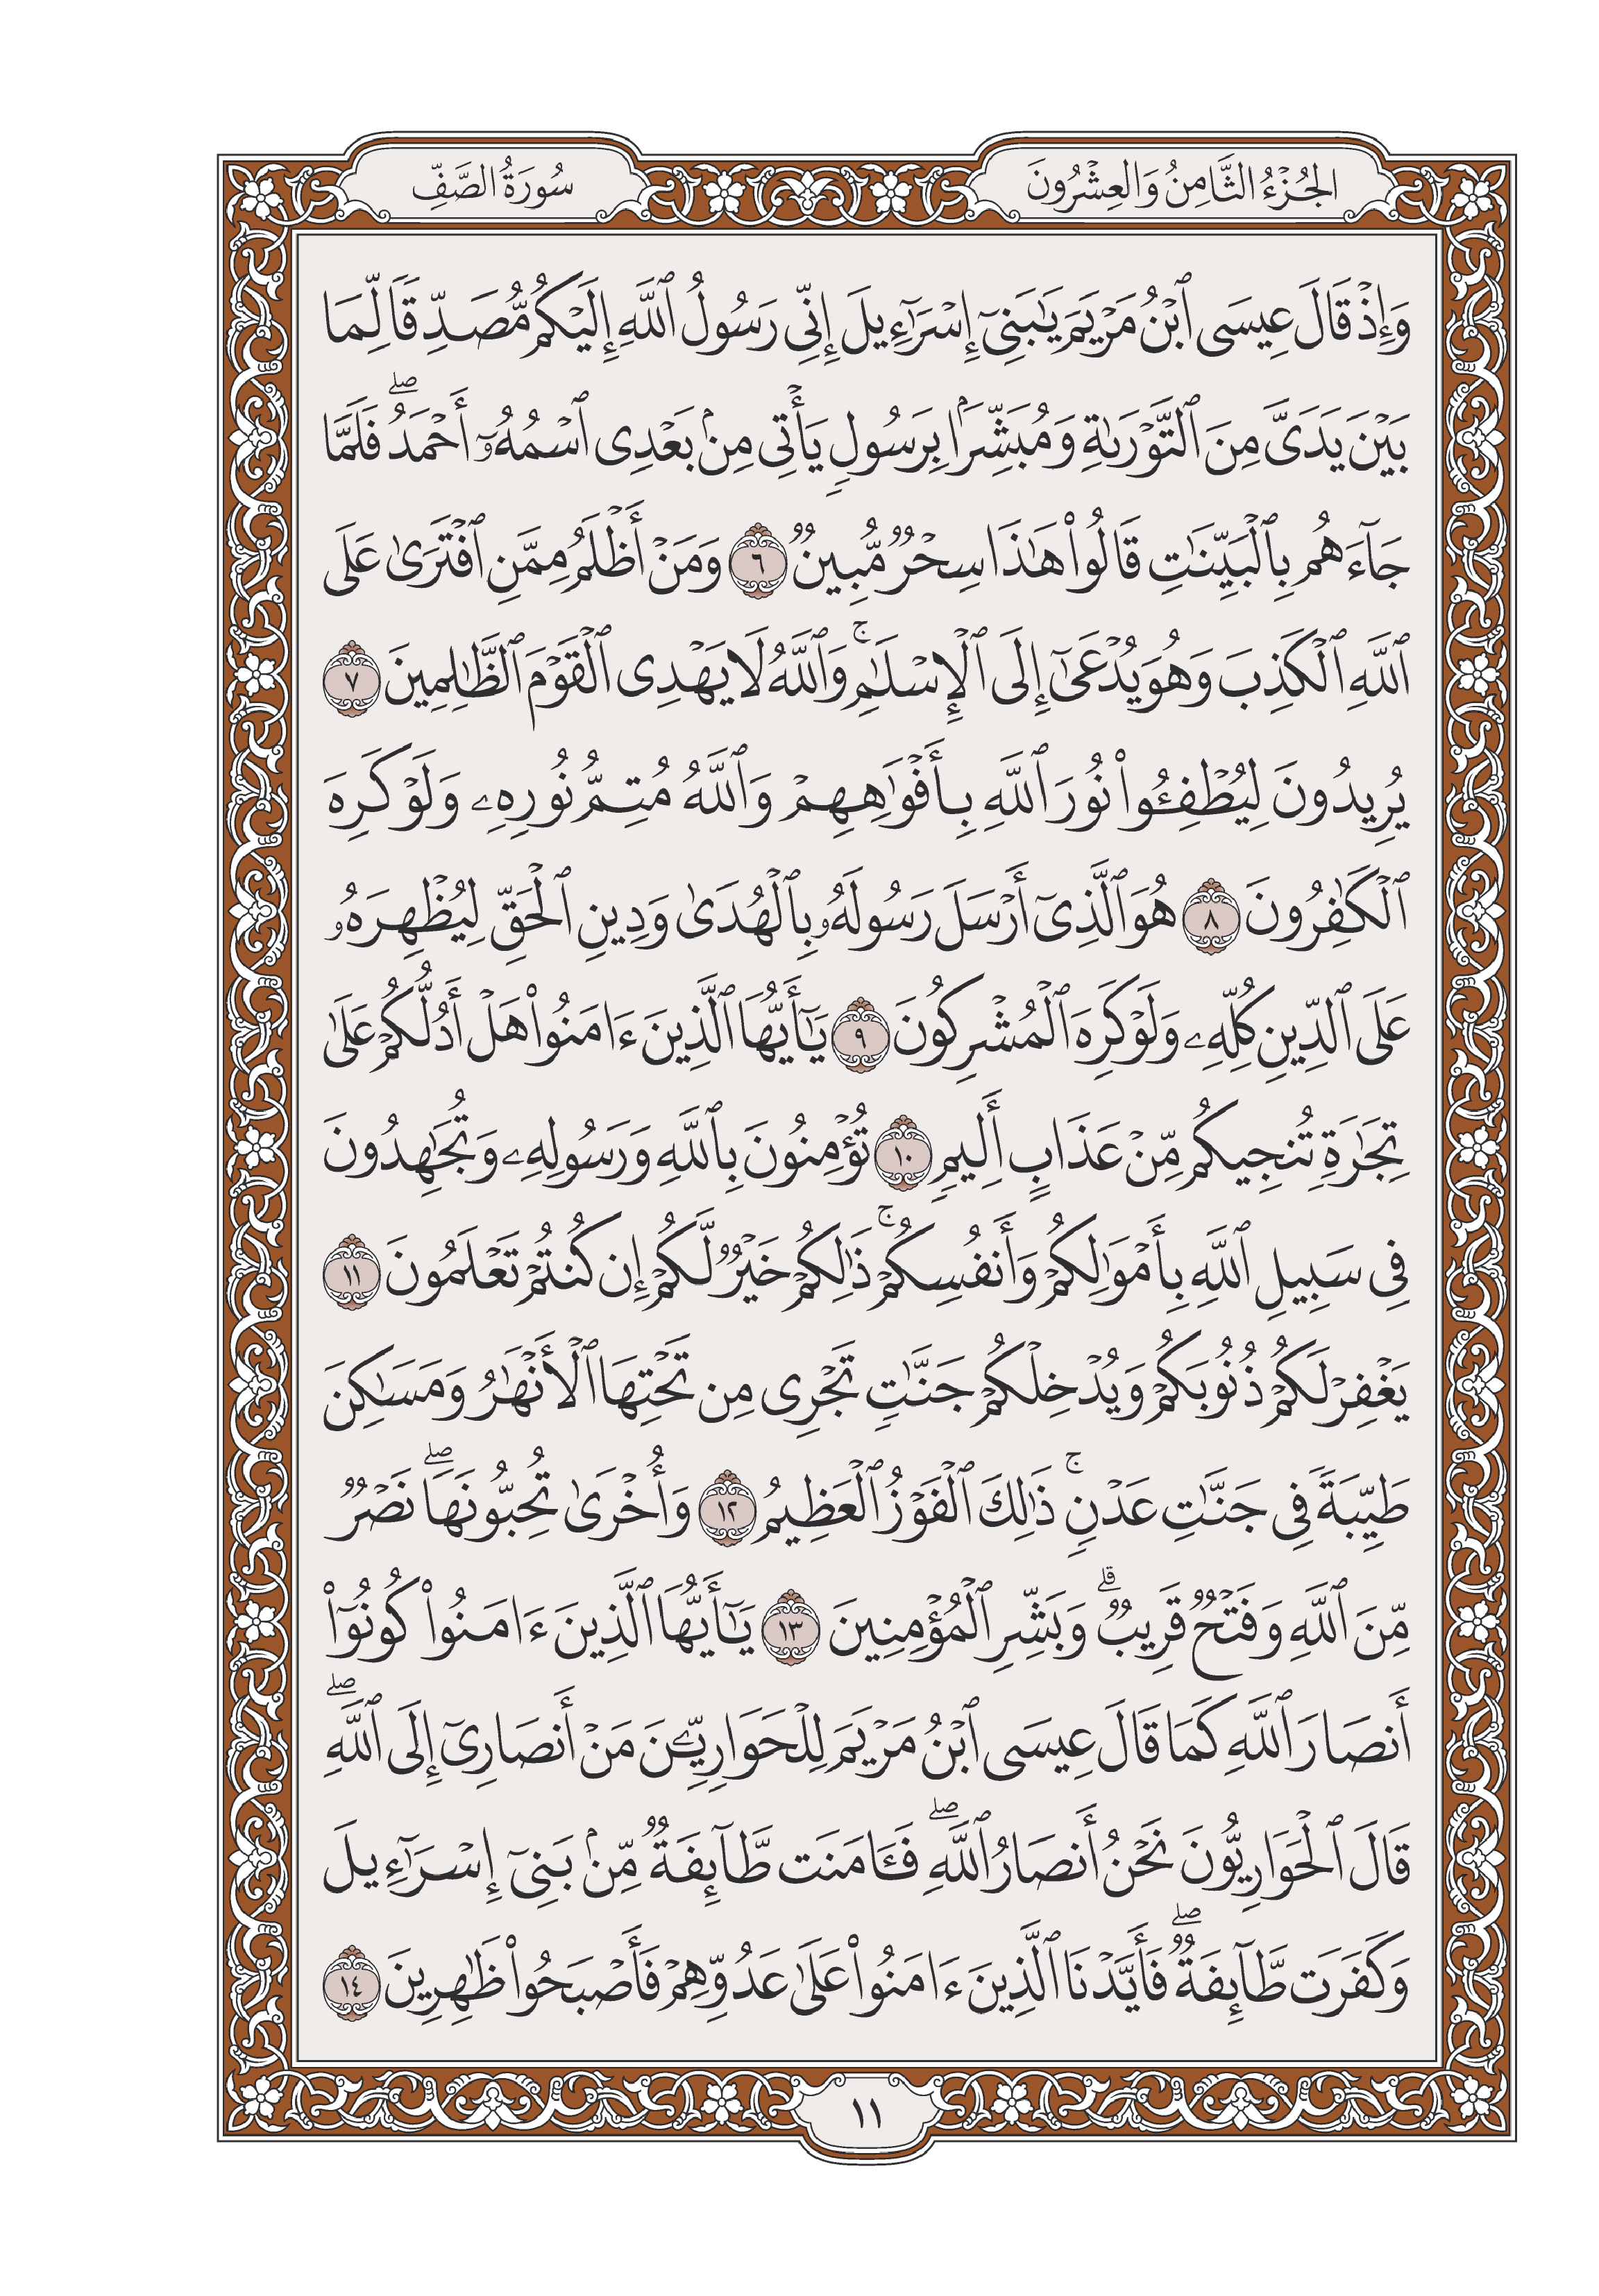 الجُزْءُ الثَّامِنُ وَالعِشْرُونَ
سُورَةُ الصَّفِّ
وَإِذْ قَالَ عِيسَى ٱبْنُ مَرْيَمَ يَٰبَنِىٓ إِسْرَٰٓءِيلَ إِنِّى رَسُولُ ٱللَّهِ إِلَيْكُم مُّصَدِّقًا لِّمَا
بَيْنَ يَدَىَّ مِنَ ٱلتَّوْرَىٰةِ وَمُبَشِّرًۢا بِرَسُولٍ يَأْتِى مِنۢ بَعْدِى ٱسْمُهُۥٓ أَحْمَدُ ۖ فَلَمَّا
جَآءَهُم بِٱلْبَيِّنَٰتِ قَالُوا۟ هَٰذَا سِحْرٌ مُّبِينٌ ٦ وَمَنْ أَظْلَمُ مِمَّنِ ٱفْتَرَىٰ عَلَى
ٱللَّهِ ٱلْكَذِبَ وَهُوَ يُدْعَىٰٓ إِلَى ٱلْإِسْلَٰمِ ۚ وَٱللَّهُ لَا يَهْدِى ٱلْقَوْمَ ٱلظَّٰلِمِينَ ٧
يُرِيدُونَ لِيُطْفِـُٔوا۟ نُورَ ٱللَّهِ بِأَفْوَٰهِهِمْ وَٱللَّهُ مُتِمُّ نُورِهِۦ وَلَوْ كَرِهَ
ٱلْكَٰفِرُونَ ٨ هُوَ ٱلَّذِىٓ أَرْسَلَ رَسُولَهُۥ بِٱلْهُدَىٰ وَدِينِ ٱلْحَقِّ لِيُظْهِرَهُۥ
عَلَى ٱلدِّينِ كُلِّهِۦ وَلَوْ كَرِهَ ٱلْمُشْرِكُونَ ٩ يَٰٓأَيُّهَا ٱلَّذِينَ ءَامَنُوا۟ هَلْ أَدُلُّكُمْ عَلَىٰ
تِجَٰرَةٍ تُنجِيكُم مِّنْ عَذَابٍ أَلِيمٍ ١٠ تُؤْمِنُونَ بِٱللَّهِ وَرَسُولِهِۦ وَتُجَٰهِدُونَ
فِى سَبِيلِ ٱللَّهِ بِأَمْوَٰلِكُمْ وَأَنفُسِكُمْ ۚ ذَٰلِكُمْ خَيْرٌ لَّكُمْ إِن كُنتُمْ تَعْلَمُونَ ١١
يَغْفِرْ لَكُمْ ذُنُوبَكُمْ وَيُدْخِلْكُمْ جَنَّٰتٍ تَجْرِى مِن تَحْتِهَا ٱلْأَنْهَٰرُ وَمَسَٰكِنَ
طَيِّبَةً فِى جَنَّٰتِ عَدْنٍ ۚ ذَٰلِكَ ٱلْفَوْزُ ٱلْعَظِيمُ ١٢ وَأُخْرَىٰ تُحِبُّونَهَا ۖ نَصْرٌ
مِّنَ ٱللَّهِ وَفَتْحٌ قَرِيبٌ ۗ وَبَشِّرِ ٱلْمُؤْمِنِينَ ١٣ يَٰٓأَيُّهَا ٱلَّذِينَ ءَامَنُوا۟ كُونُوٓا۟
أَنصَارَ ٱللَّهِ كَمَا قَالَ عِيسَى ٱبْنُ مَرْيَمَ لِلْحَوَارِيِّـۧنَ مَنْ أَنصَارِىٓ إِلَى ٱللَّهِ ۖ
قَالَ ٱلْحَوَارِيُّونَ نَحْنُ أَنصَارُ ٱللَّهِ ۖ فَـَٔامَنَت طَّآئِفَةٌ مِّنۢ بَنِىٓ إِسْرَٰٓءِيلَ
وَكَفَرَت طَّآئِفَةٌ ۖ فَأَيَّدْنَا ٱلَّذِينَ ءَامَنُوا۟ عَلَىٰ عَدُوِّهِمْ فَأَصْبَحُوا۟ ظَٰهِرِينَ ١٤
١١